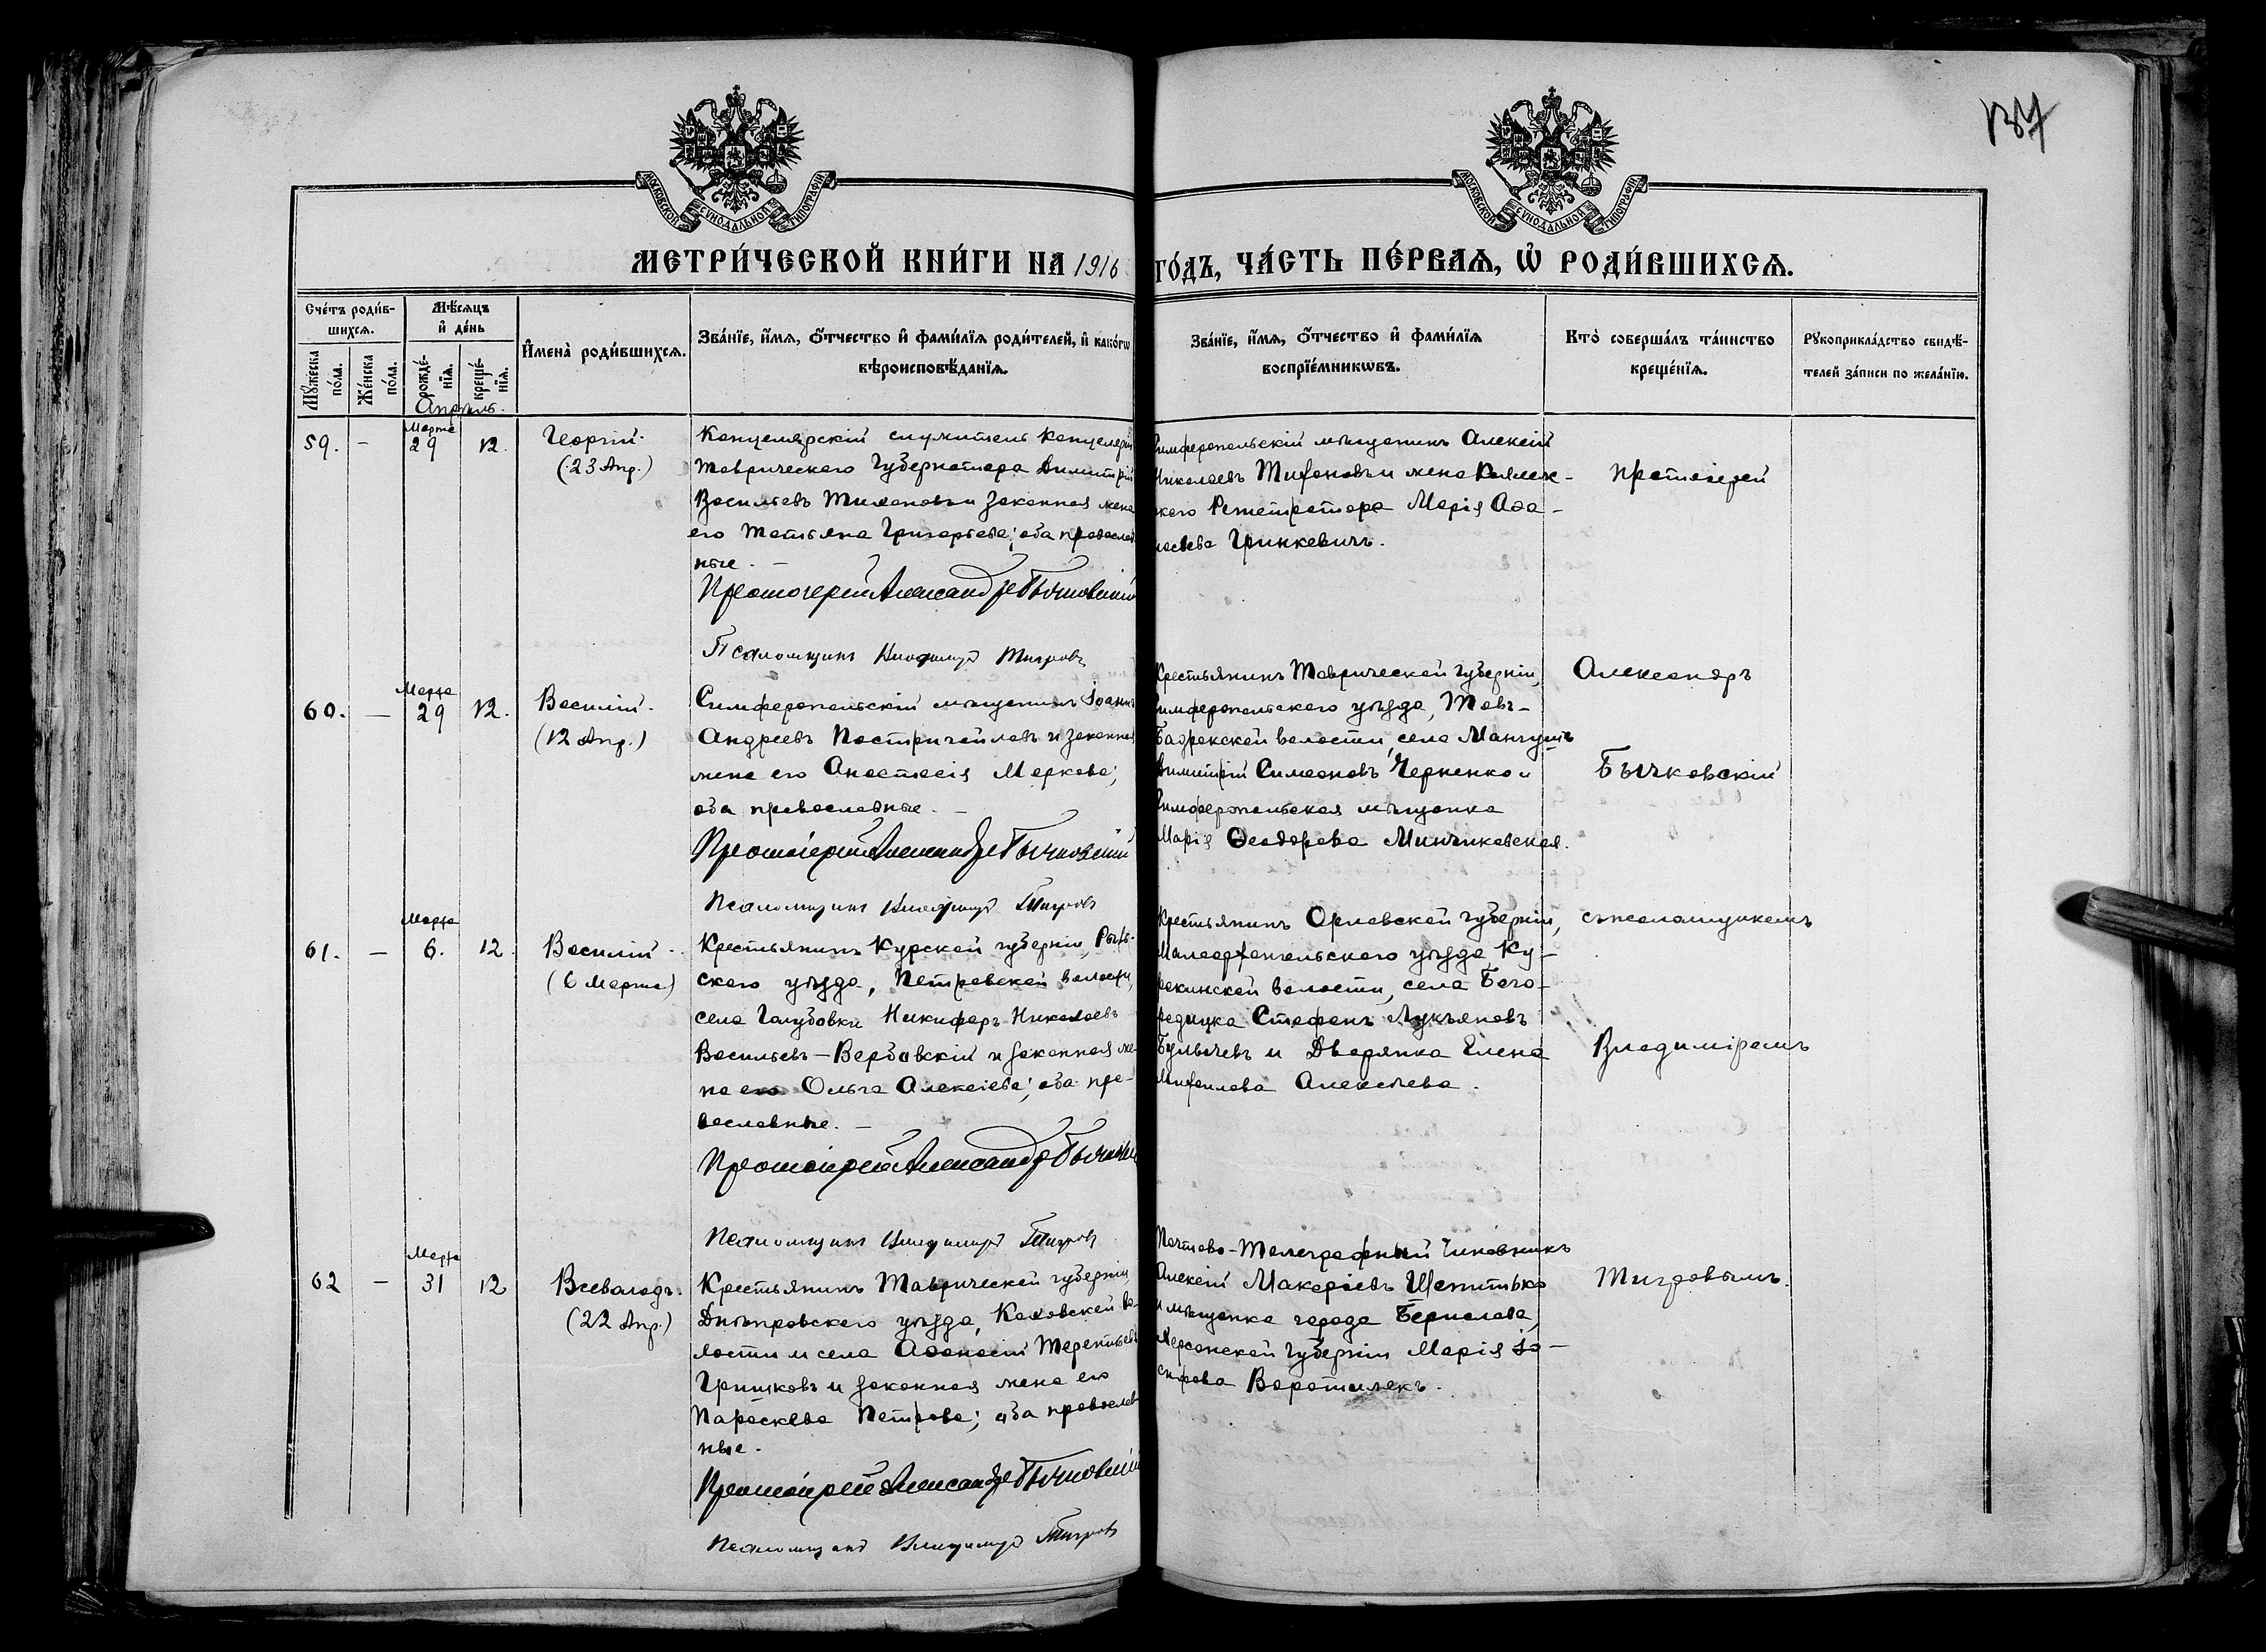 137
МОСКОВСКОЙ СѴНОДАЛЬНОЙ ТИПОГРАФІИ
МОСКОВСКОЙ СѴНОДАЛЬНОЙ ТИПОГРАФІИ
МЕТРИ́ЧЕСКОЙ КНИ́ГИ НА 1916
ГО́ДЪ, ЧА́СТЬ ПЕ́РВАѦ, Ѡ҆ РОДИ́ВШИХСѦ.
Сче́тъ роди́в-
шихсѧ.
Мꙋ́жеска
по́ла.
Же́нска
по́ла.
Мѣ́сѧцъ
и҆ де́нь
рожде́-
нїѧ.
креще́-
нїѧ.
И҆мена̀ роди́вшихсѧ.
Зва́нїе, и҆́мѧ, ѻ҆́тчество и҆ фами́лїѧ роди́телей, и҆ како́гѡ
вѣроисповѣ́данїѧ.
Зва́нїе, и҆́мѧ, ѻ҆́тчество и҆ фами́лїѧ
воспрїе́мникѡвъ.
Кто̀ соверша́лъ та́инство
креще́нїѧ.
Рꙋкоприкла́дство свидѣ́-
телей за́писи по жела́нїю.
Апрѣль.
59. - Марта 29 12. Георгій.
(23 Апр.)
Канцелярскій служитель Канцеляріи
Таврическаго Губернатора Димитрій
Васильевъ Тихановъ и законная жена
его Татьяна Григорьева; оба православ
ные. -
Протоіерей Александръ Бычковскій
Псаломщикъ Владимиръ Тигровъ
Симферопольскій мѣщанинъ Алексій
Николаевъ Тихановъ и жена Коллеж-
скаго Регистратора Марія Аѳа-
насьева Гринкевичъ.
Протоіерей
60. - Марта 29 12. Василій.
(12 Апр.)
Симферопольскій мѣщанинъ Іоаннъ
Андреевъ Постригайловъ и законная
жена его Анастасія Маркова;
оба православные. -
Протоіерей Александръ Бычковскій
Псаломщикъ Владимиръ Тигровъ
Крестьянинъ Таврической губерніи,
Симферопольскаго уѣзда, Тавъ-
Бадракской волости, села Мангушъ
Димитрій Симеоновъ Черненко и
Симферопольская мѣщанка
Марія Ѳеодорова Минчиковская.
Александръ
Бычковскій
61. - Марта 6. 12 Василій.
(6 Марта)
Крестьянинъ Курской губерніи, Рыль-
скаго уѣзда, Петровской волости,
села Голубовки Никифоръ Николаевъ
Васильевъ-Вербовскій и законная же-
на его Ольга Алексіева; оба пра-
вославные. -
Протоіерей Александръ Бычковскій
Псаломщикъ Владимиръ Тигровъ
Крестьянинъ Орловской губерніи,
Малоархангельскаго уѣзда, Ку-
ракинской волости, села Бого-
родицка Стефанъ Лукьяновъ
Булычевъ и Дворянка Елена
Михаилова Алексѣева.
съ псаломщикомъ
Владиміромъ
62 - Марта 31 12 Всеволодъ.
(22 Апр.)
Крестьянинъ Таврической губерніи,
Днѣпровскаго уѣзда, Каховской во-
лости и села Аѳанасій Терентьевъ
Гришковъ и законная жена его
Параскева Петрова; оба православ
ные.
Протоіерей Александръ Бычковскій
Псаломщикъ Владимиръ Тигровъ
Почтово-Телеграфный чиновникъ
Алексій Макаріевъ Щепитько
и мѣщанка города Берислава,
Херсонской губерніи Марія Іо-
сифова Воротилекъ.
Тигровымъ.